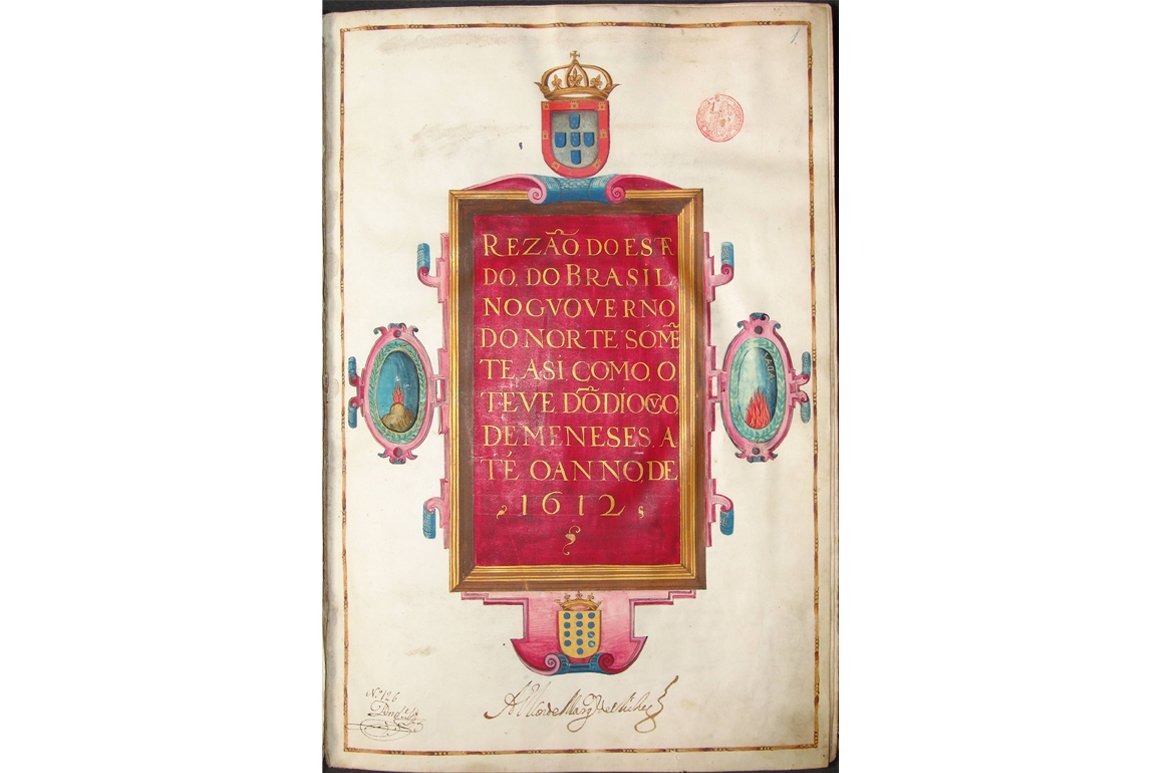 1
REZÃO DO ESTA
DO, DO BRASIL
NO GVOVERNO
DO NORTE SÓMẼ
TE ASI COMO O
TEVE DÕ DIOGVO,
DE MENESES, A
TÉ O ANNO, DE
1612
Nº 126